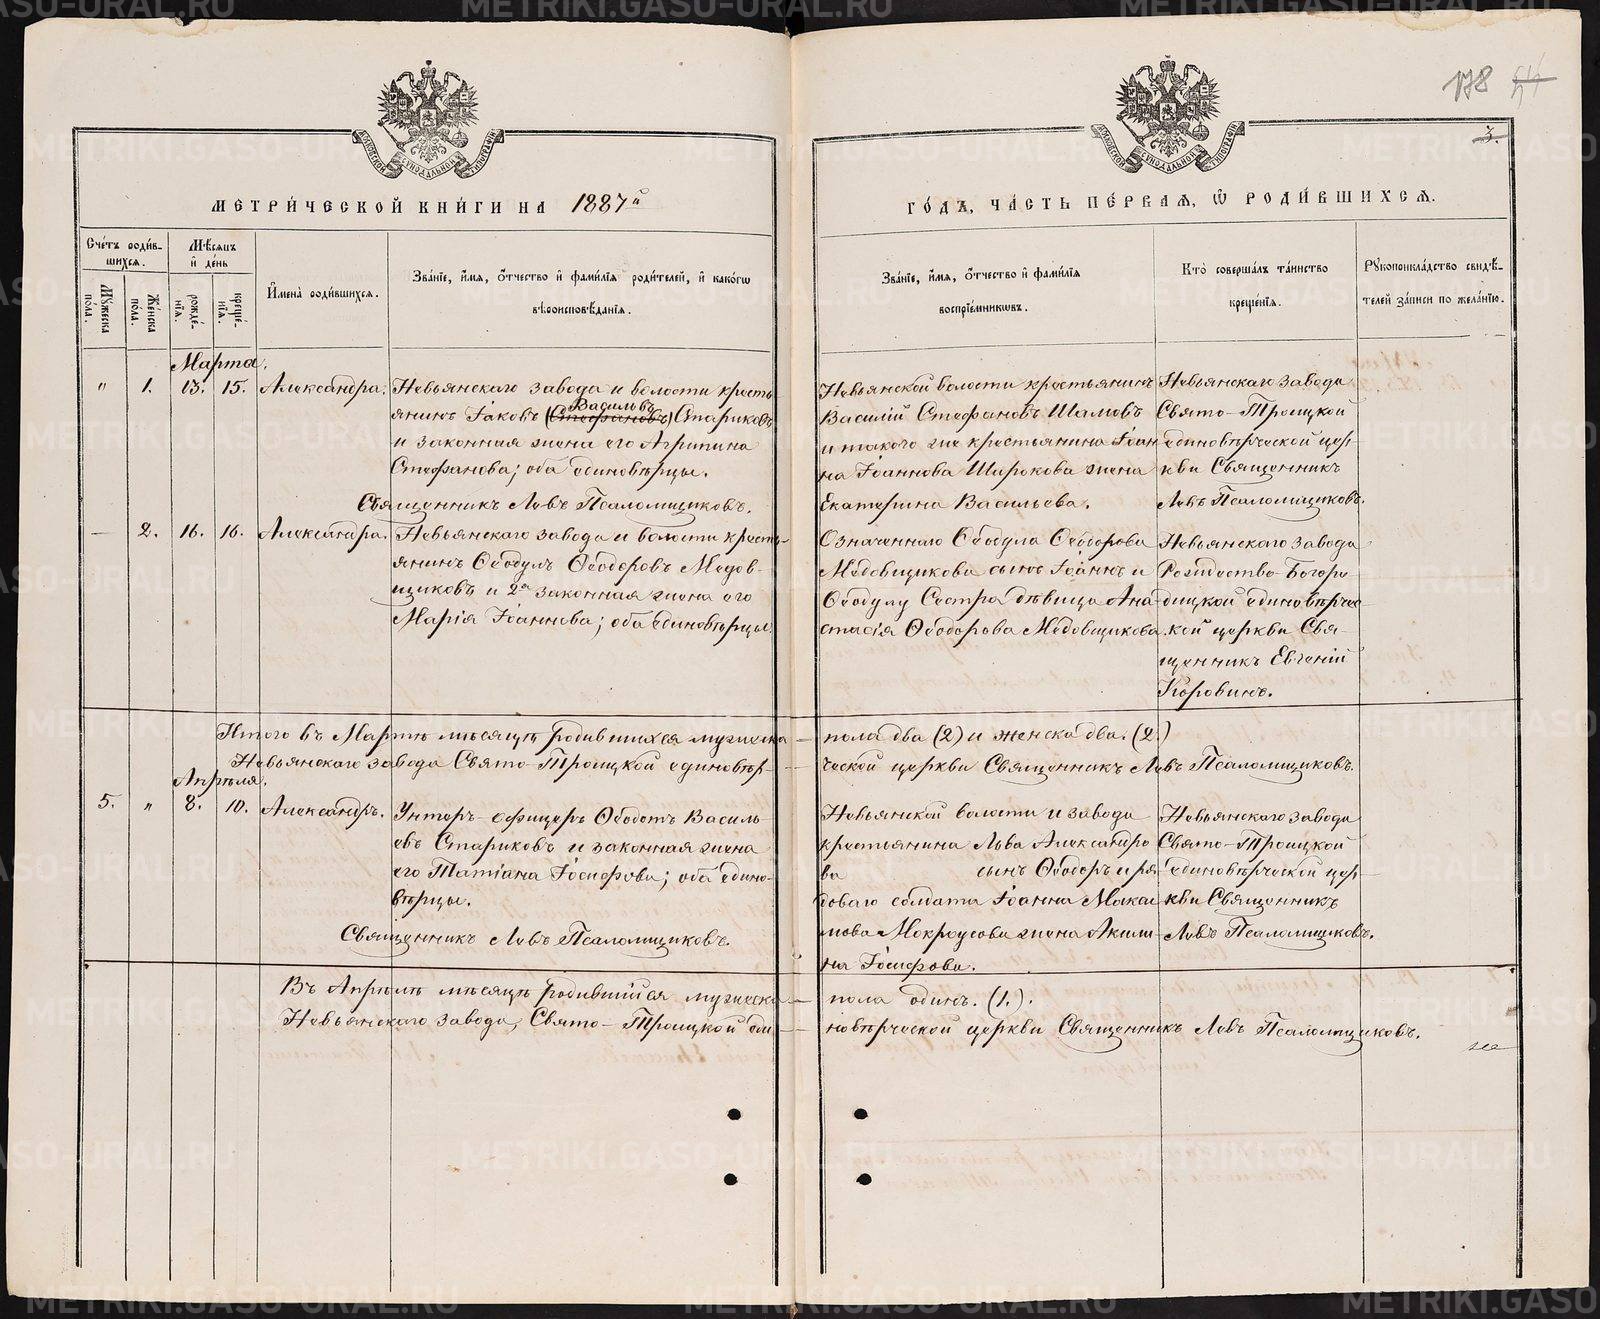 METRIKI.GASO-URAL.RU
178 54
3.
МОСКОВСКОЙ СѴНОДАЛЬНОЙ ТИПОГРАФІИ
МОСКОВСКОЙ СѴНОДАЛЬНОЙ ТИПОГРАФІИ
МЕТРИ́ЧЕСКОЙ КНИ́ГИ НА 1887й
ГО́ДЪ, ЧА́СТЬ ПЕ́РВАѦ, Ѡ РОДИ́ВШИХСѦ.
Сче́тъ роди́в-
шихсѧ.
Мѣсѧцъ
и де́нь
Му́жеска по́ла.
Же́нска по́ла.
рожде́-нїѧ.
креще́-нїѧ.
Имена̀ роди́вшихсѧ.
Зва́нїе, и́мѧ, о́тчество и фами́лїѧ роди́телей, и како́гѡ
вѣроисповѣ́данїѧ.
Зва́нїе, и́мѧ, о́тчество и фами́лїѧ
воспрїе́мникѡвъ.
Кто̀ соверша́лъ та́инство
креще́нїѧ.
Рꙋкоприкла́дство свидѣ́-
телей за́писи по жела́нїю.
Марта.
" 1. 13. 15. Александра.
Невьянскаго завода и волости кресть-
янинъ Іаковъ (Стефановъ) Васильевъ Стариковъ
и законная жена его Агрипина
Стефанова; оба единовѣрцы.
Священникъ Левъ Псаломщиковъ.
Невьянской волости крестьянинъ
Василій Стефановъ Шамовъ
и такого же крестьянина Іоан
на Іоаннова Широкова жена
Екатерина Васильева.
Невьянскаго завода
Свято-Троицкой
единовѣрческой цер-
кви Священникъ
Левъ Псаломщиковъ.
— 2. 16. 16. Александра.
Невьянскаго завода и волости кресть-
янинъ Ѳеодулъ Ѳеодоровъ Медов-
щиковъ и 2я законная жена его
Марія Іоаннова; оба единовѣрцы.
Означеннаго Ѳеодула Ѳеодорова
Медовщикова сынъ Іоаннъ и
Ѳеодулу Сестра дѣвица Ана-
стасія Ѳеодорова Медовщикова.
Невьянскаго завода
Рождество-Богоро-
дицкой единовѣрчес-
кой церкви Свя-
щенникъ Евгеній
Коровинъ.
Итого въ Мартѣ мѣсяцѣ родившихся мужеска — пола два (2) и женска два. (2.)
Невьянскаго завода Свято-Троицкой единовѣр- — ческой церкви Священникъ Левъ Псаломщиковъ.
Апрѣля.
5. " 8. 10. Александръ.
Унтеръ-офицеръ Ѳеодотъ Василь-
евъ Стариковъ и законная жена
его Татіана Іосифова; оба едино-
вѣрцы.
Священникъ Левъ Псаломщиковъ.
Невьянской волости и завода
крестьянина Льва Александро
ва сынъ Ѳеодоръ и ря-
доваго солдата Іоанна Макси
мова Мокроусова жена Акили-
на Іосифова.
Невьянскаго завода
Свято-Троицкой
единовѣрческой цер-
кви Священникъ
Левъ Псаломщиковъ.
Въ Апрѣлѣ мѣсяцѣ родившійся мужеска — пола одинъ. (1.).
Невьянскаго завода, Свято-Троицкой еди — новѣрческой церкви Священникъ Левъ Псаломщиковъ.